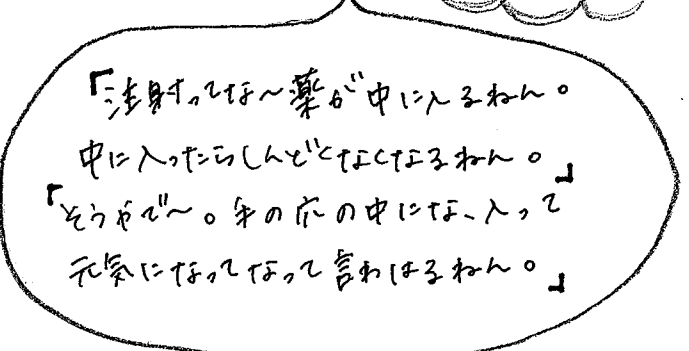 『注射ってな〜薬が中に入るねん。
中に入ったらしんどくなくなるねん。』
『そうやで〜。針の穴の中にな、入って
元気になってなって言わはるねん。』